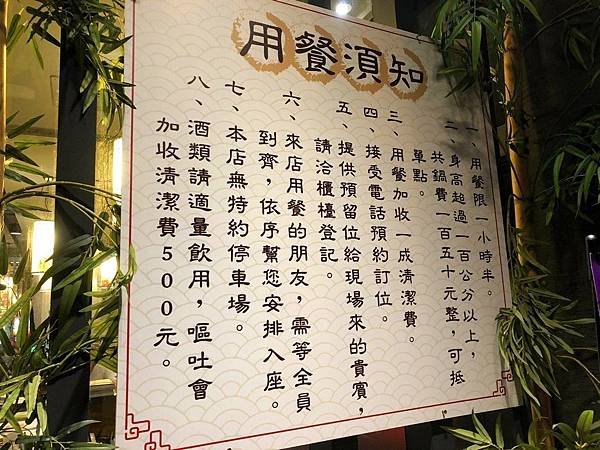 用餐須知
一、用餐限一小時半。
二、身高超過一百公分以上，
共鍋費一百五十元整，可抵
單點。
三、用餐加收一成清潔費。
四、接受電話預約訂位。
五、提供預留位給現場來的貴賓，
請洽櫃檯登記。
六、來店用餐的朋友，需等全員
到齊，依序幫您安排入座。
七、本店無特約停車場。
八、酒類請適量飲用，嘔吐會
加收清潔費500元。